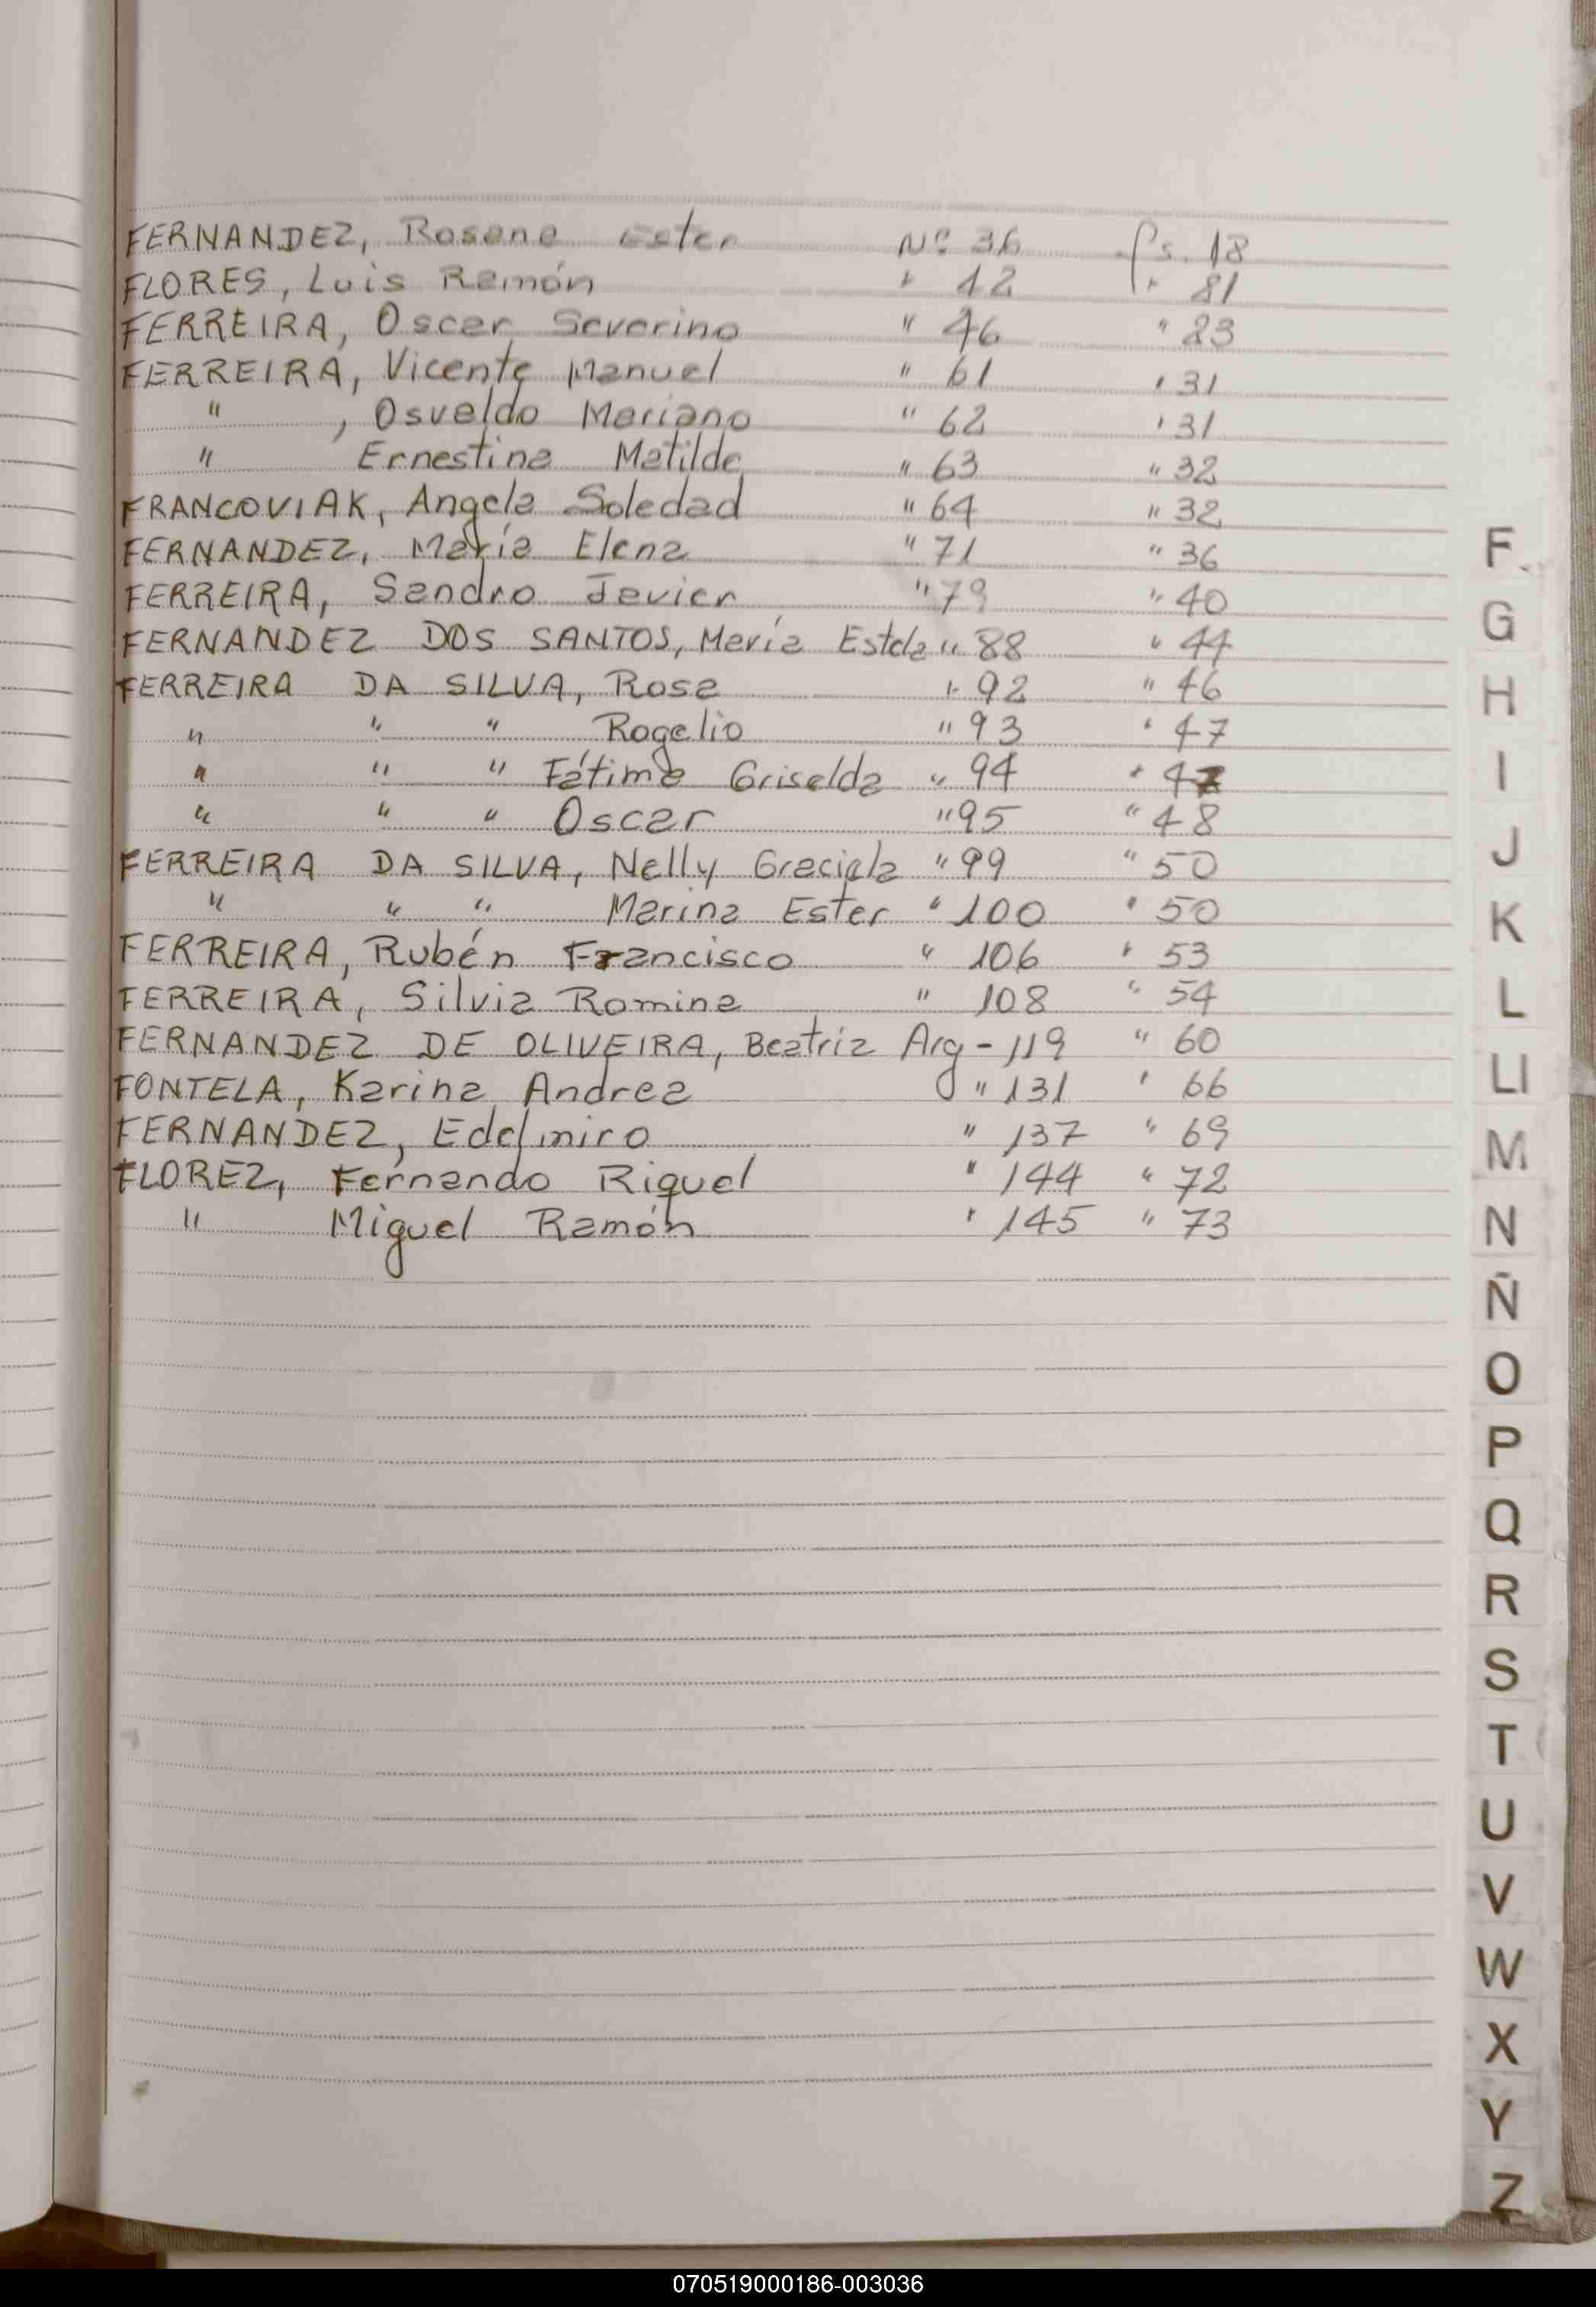 FERNANDEZ, Rosana Ester Nº 36 fs. 18
FLORES, Luis Ramón " 42 " 81
FERREIRA, Oscar Severino " 46 " 23
FERREIRA, Vicente Manuel " 61 " 31
" , Osvaldo Mariano " 62 " 31
" Ernestina Matilde " 63 " 32
FRANCOVIAK, Angela Soledad " 64 " 32
FERNANDEZ, María Elena " 71 " 36
FERREIRA, Sandro Javier " 79 " 40
FERNANDEZ DOS SANTOS, María Estela " 88 " 44
FERREIRA DA SILVA, Rosa " 92 " 46
" " " Rogelio " 93 " 47
" " " Fátima Griselda " 94 " 47
" " " Oscar " 95 " 48
FERREIRA DA SILVA, Nelly Graciela " 99 " 50
" " " Marina Ester " 100 " 50
FERREIRA, Rubén Francisco " 106 " 53
FERREIRA, Silvia Romina " 108 " 54
FERNANDEZ DE OLIVEIRA, Beatriz Arg - 119 " 60
FONTELA, Karina Andrea " 131 " 66
FERNANDEZ, Edelmiro " 137 " 69
FLOREZ, Fernando Riquel " 144 " 72
" Miguel Ramón " 145 " 73
F
G
H
I
J
K
L
Ll
M
N
Ñ
O
P
Q
R
S
T
U
V
W
X
Y
Z
070519000186-003036